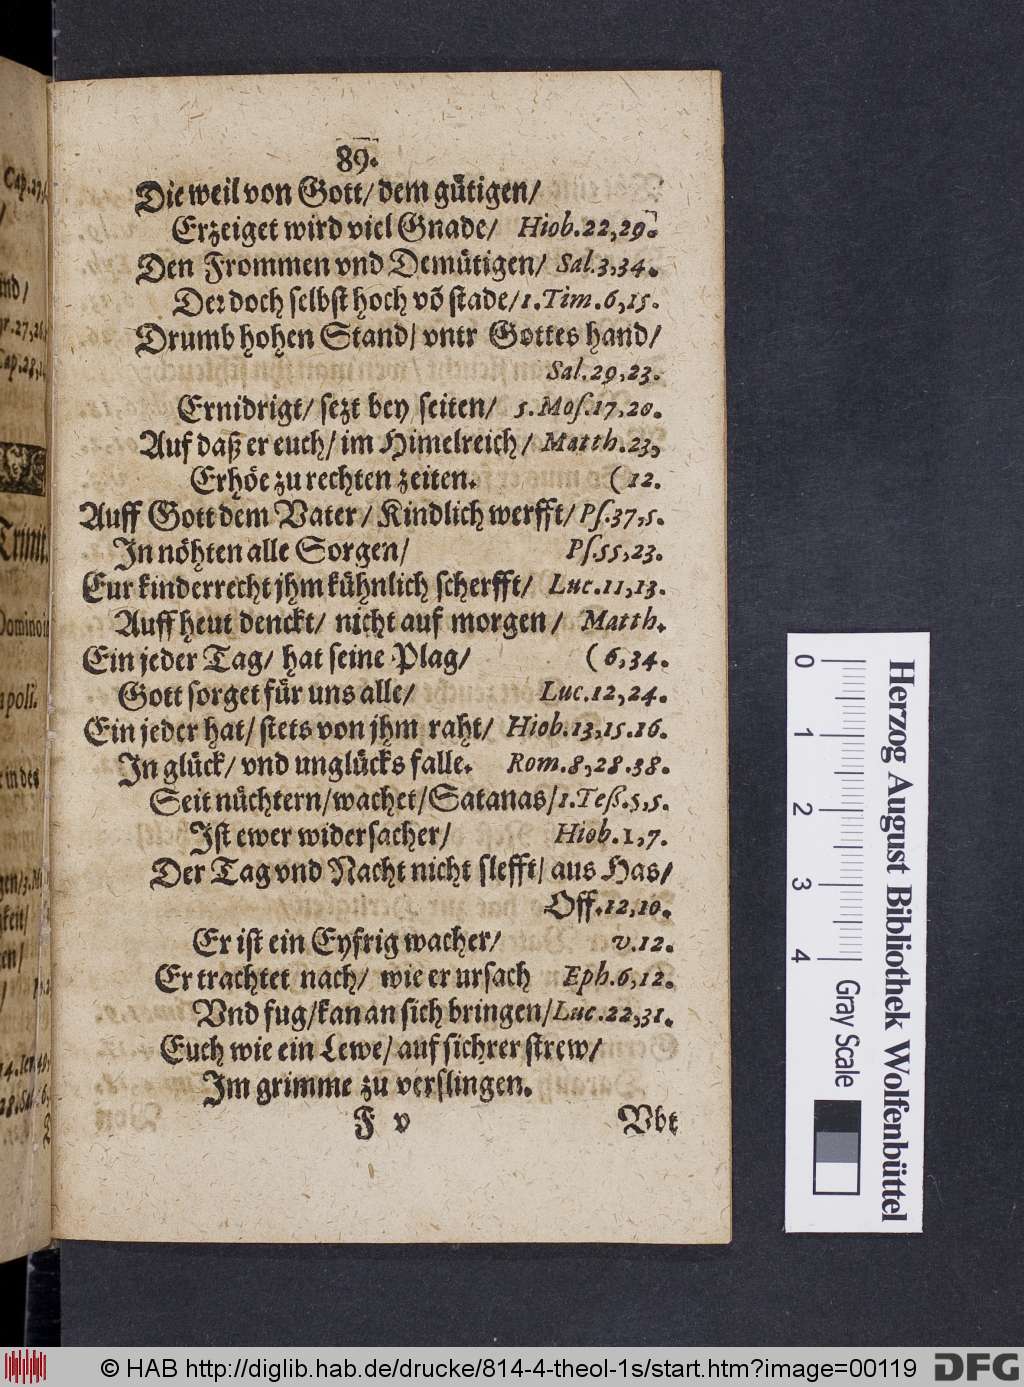 89.
Die weil von Gott/ dem gütigen/
Erzeiget wird viel Gnade/ Hiob.22,29.
Den Frommen vnd Demütigen/ Sal.3,34.
Der doch selbst hoch võ stade/1.Tim.6,15.
Drumb hohen Stand/ vntr Gottes hand/
Sal.29,23.
Ernidrigt/ sezt bey seiten/ 5.Mos.17,20.
Auf daß er euch/ im Himelreich/ Matth.23,
Erhöe zu rechten zeiten. (12.
Auff Gott dem Vater/ Kindlich werfft/ Ps.37,5.
In nöhten alle Sorgen/ Ps.55,23.
Eur kinderrecht jhm kühnlich scherfft/ Luc.11,13.
Auff heut denckt/ nicht auf morgen/ Matth.
Ein jeder Tag/ hat seine Plag/ (6,34.
Gott sorget für uns alle/ Luc.12,24.
Ein jeder hat/ stets von jhm raht/ Hiob.13,15.16.
In glück/ vnd unglücks falle. Rom.8,28.38.
Seit nüchtern/wachet/Satanas/1.Teß.5,5.
Ist ewer widersacher/ Hiob.1,7.
Der Tag vnd Nacht nicht slefft/ aus Has/
Off.12,10.
Er ist ein Eyfrig wacher/ v.12.
Er trachtet nach/ wie er ursach Eph.6,12.
Vnd fug/kan an sich bringen/Luc.22,31.
Euch wie ein Lewe/ auf sichrer strew/
Im grimme zu verslingen.
F v Vbt
Cap.
Trinit.
Domino
apoli.
in des
0 1 2 3 4
Gray Scale
Herzog August Bibliothek Wolfenbüttel
© HAB http://diglib.hab.de/drucke/814-4-theol-1s/start.htm?image=00119
DFG